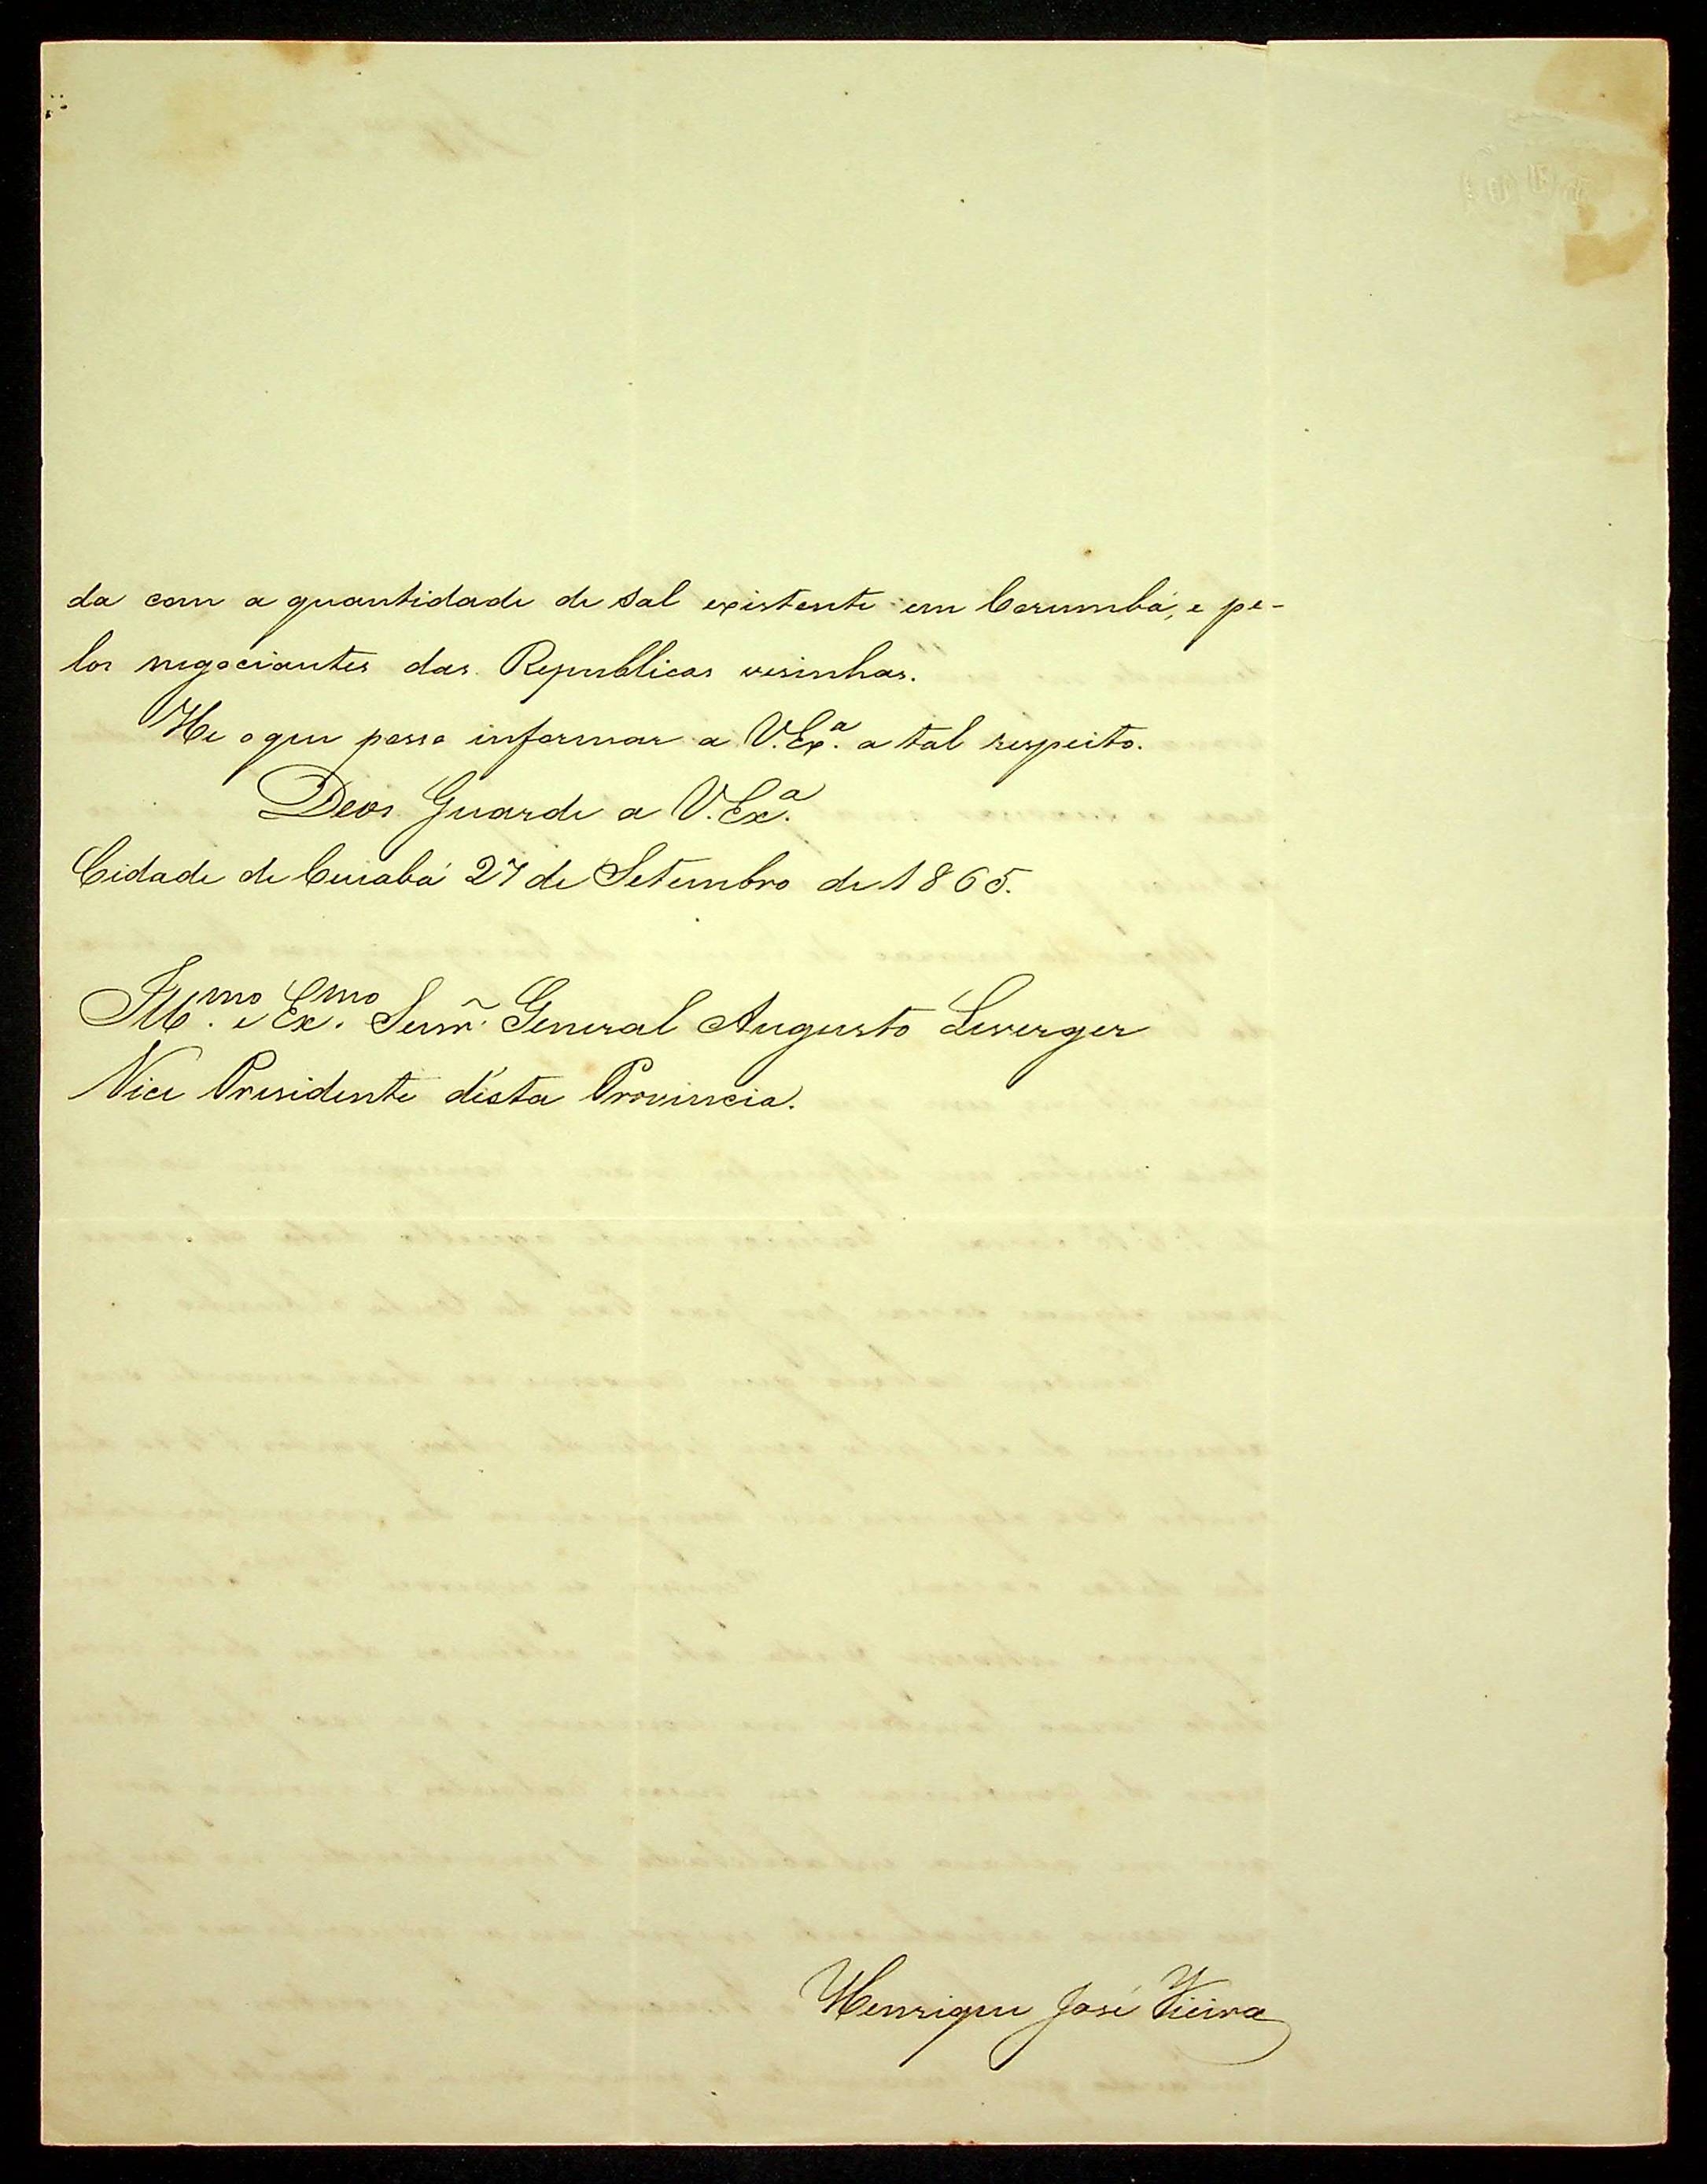 da com a quantidade de sal existente em Corumbá, e pe-
los negociantes das Republicas visinhas.
He o que posso informar a V. Exª. a tal respeito.
Deos Guarde a V. Exª.
Cidade de Cuiabá 27 de Setembro de 1865.
Illmo. e Exmo. Senr̃. General Augusto Leverger
Vice Presidente d'esta Provincia.
Henrique José Vieira